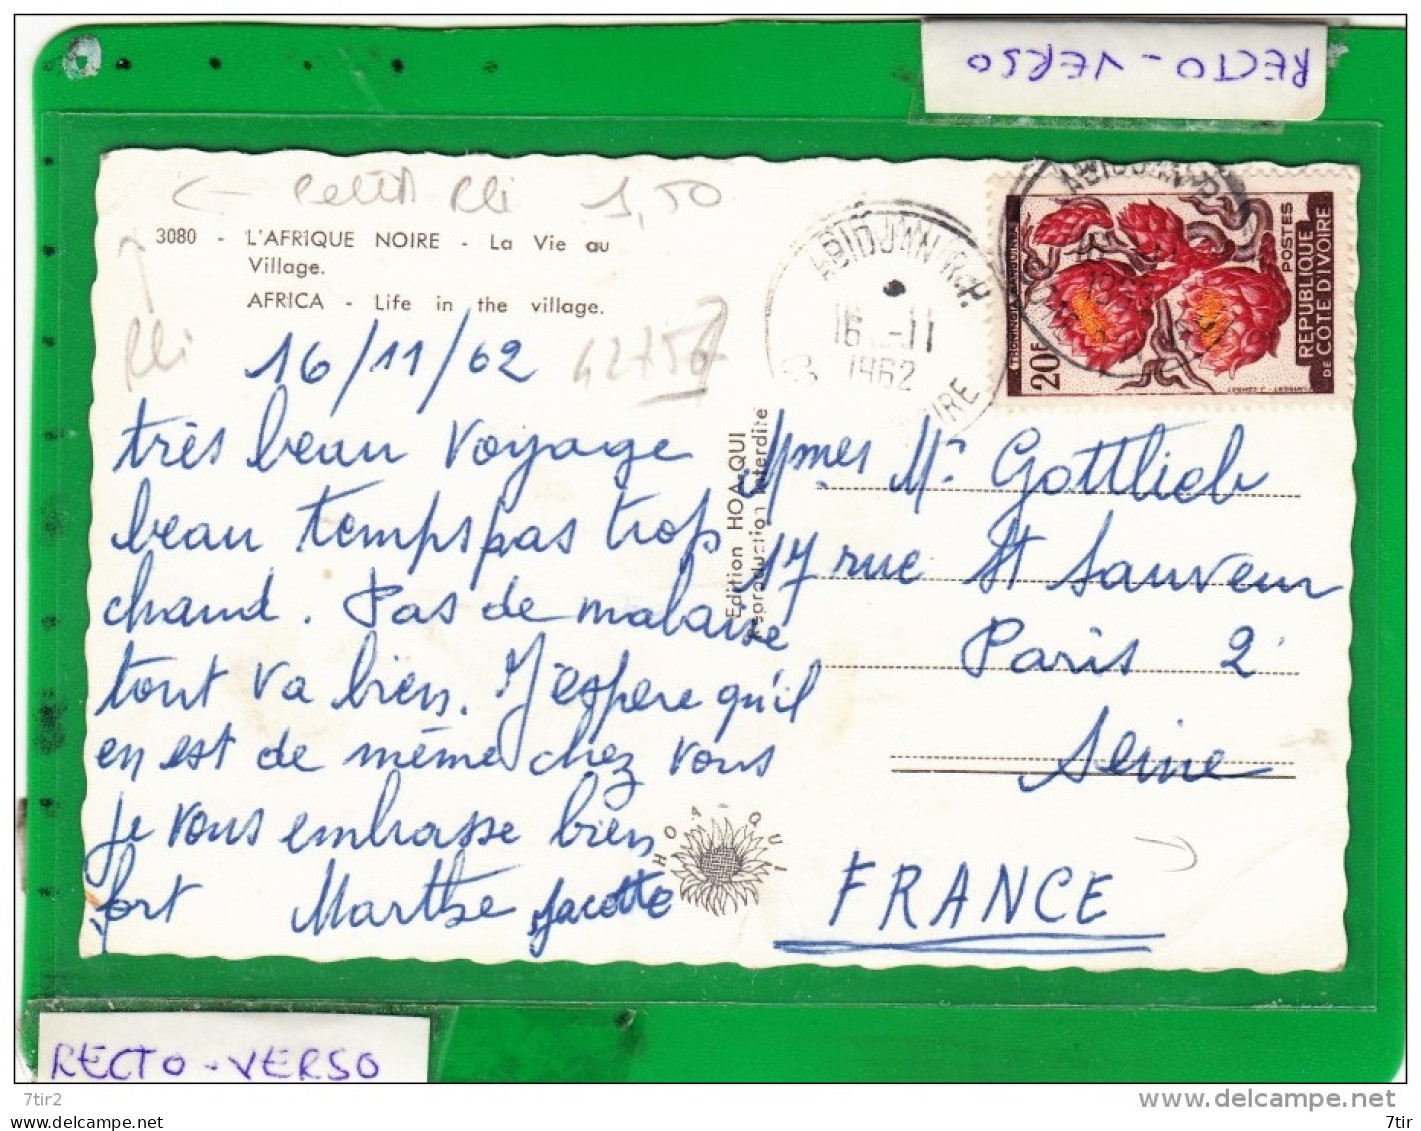 RECTO - VERSO
← Petit Pli 1,50
3080 - L'AFRIQUE NOIRE - La Vie au
Village.
AFRICA - Life in the village.
Pli
16/11/62
très beau voyage
beau temps pas trop
chaud. Pas de malaise
tout va bien. J'espere qu'il
en est de même chez vous
je vous embrasse bien
fort Marthe Jacotte
Edition HOA-QUI
Reproduction interdite
HOA-QUI
ABIDJAN R.P.
16 -11
1962
IRE
ABIDJAN R.P.
THONNINGIA SANGUINEA
20F
POSTES
REPUBLIQUE
DE COTE D'IVOIRE
Mmes Mr Gottlieb
17 rue St Sauveur
Paris 2
Seine
FRANCE
RECTO - VERSO
7tir2
www.delcampe.net
7tir